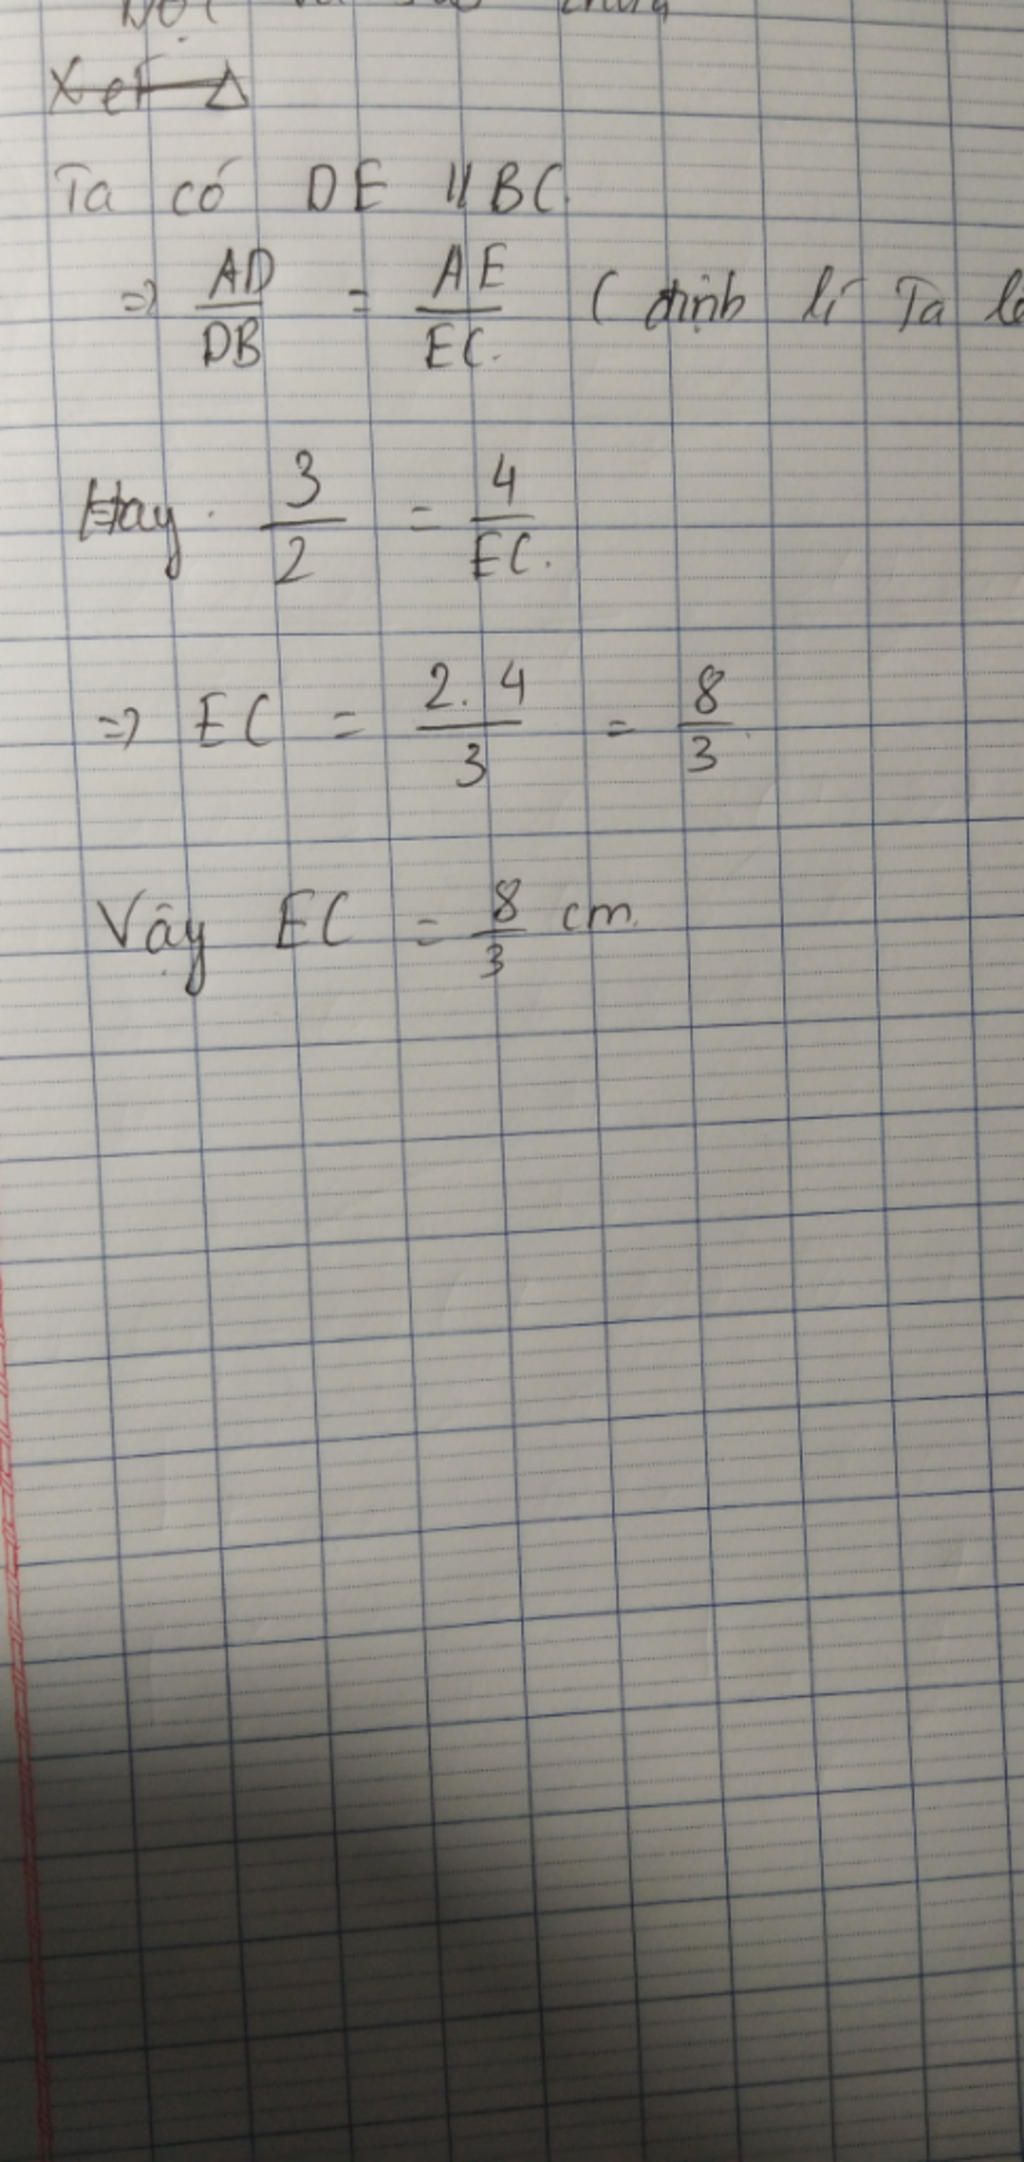 Xét Δ
Ta có DE // BC
=> AD/DB = AE/EC. (định lí Ta
Hay 3/2 = 4/EC.
=> EC = 2.4/3 = 8/3
Vậy EC = 8/3 cm.